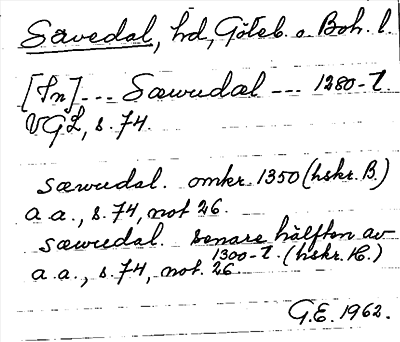 Sävedal, hd, Göteb. o. Boh. l.
[In] --- Sæwudal --- 1280-t.
VGL, s. 74.
Sæwudal. omkr. 1350 (hskr. B.)
a. a., s. 74, not 26.
Sæwedal. senare hälften av
1300-t. (hskr. K.)
a. a., s. 74, not. 26.
G.E. 1962.